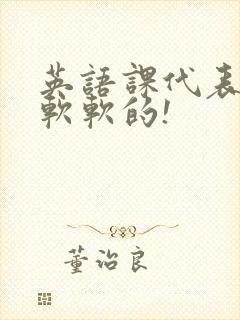 英語課代表
軟軟的！
董治良